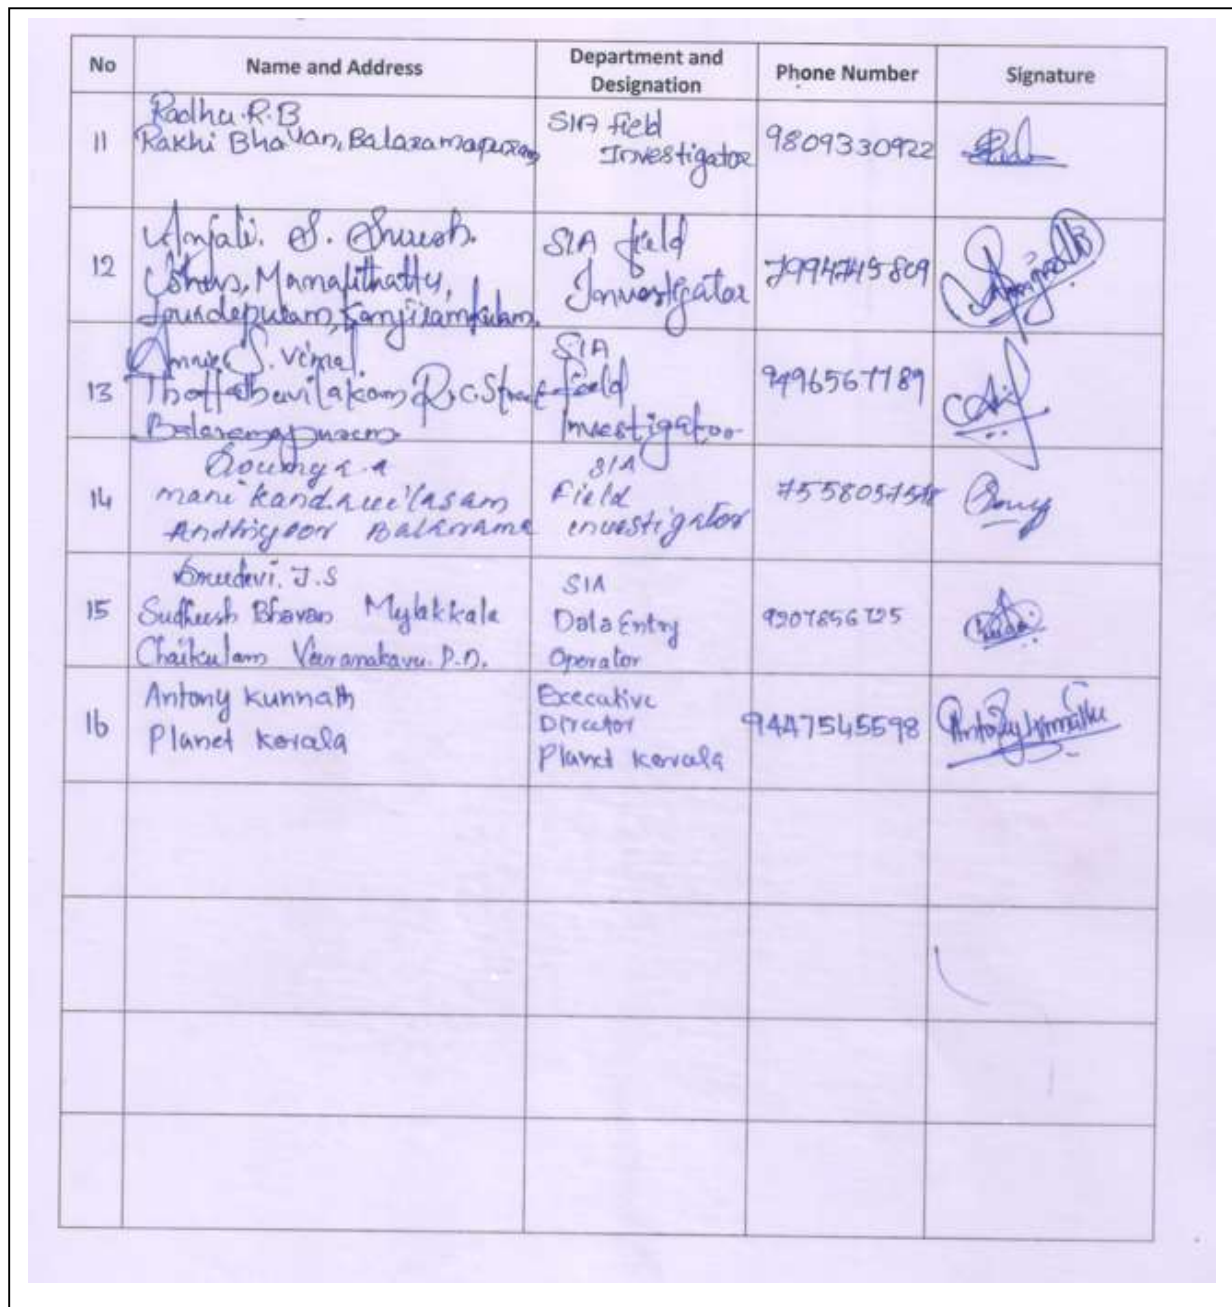 No Name and Address Department and Designation Phone Number Signature
11
Radhu. R. B
Rakhi Bhavan, Balaramapuram
SIA field
Investigator
9809330922
12
Anjali. S. Suresh.
Manalithatty,
Lourdepuram, Kanjiramkulam.
SIA field
Investigator
7994745809
13
S. Vimal
Thottathuvilakom R.C. Street
Balaramapuram
SIA
field
Investigator
9496567789
14
Soumya
manikandavilasam
Andhiyoor Balarama
SIA
Field
investigator
15
Sreedevi. J.S
Sudheesh Bhavan Mylakkala
Chaikulam Veeranakavu. P.O.
SIA
Data Entry
Operator
9207856725
16
Antony Kunnath
Planet Kerala
Executive
Director
Planet Kerala
9447545598
Antony Kunnath